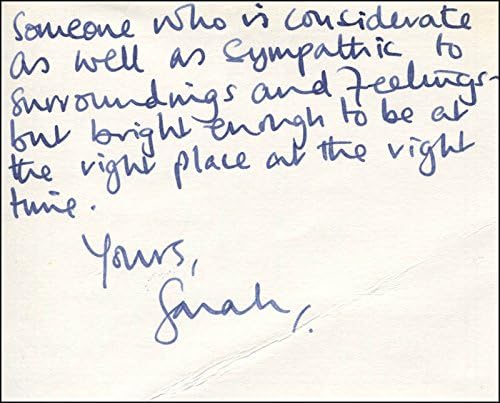 Someone who is considerate
as well as sympathic to
surroundings and feelings-
but bright enough to be at
the right place at the right
time.
Yours,
Sarah,